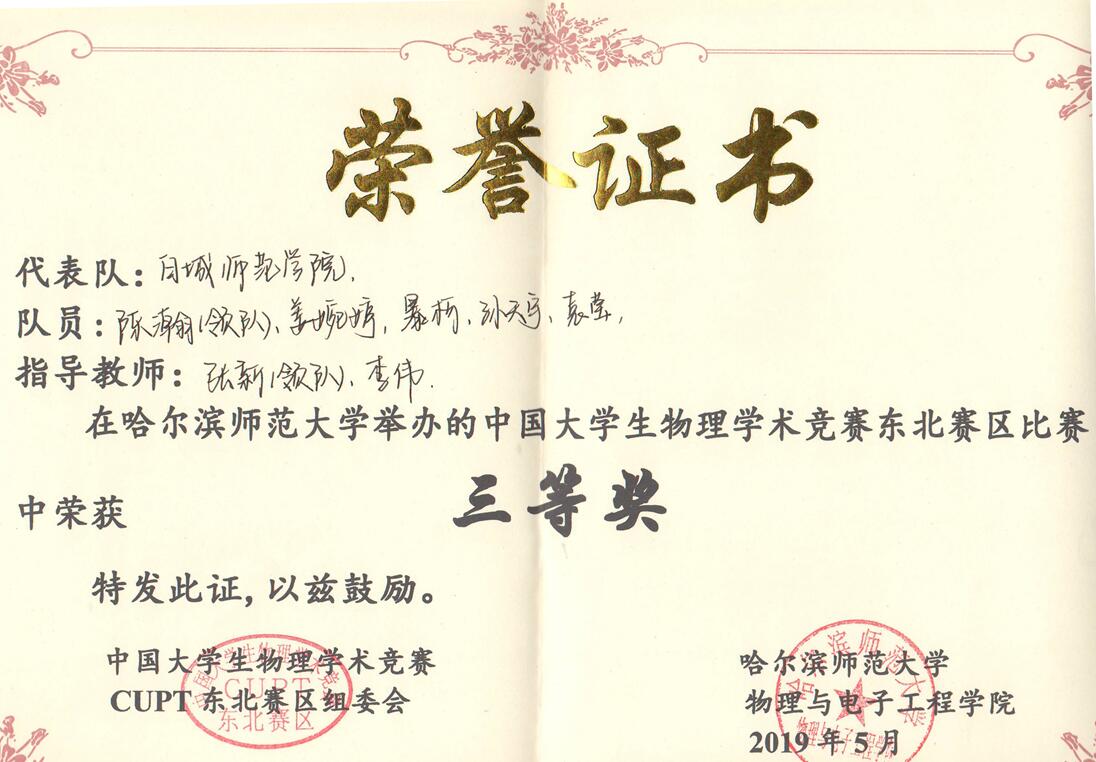 荣誉证书
代表队：白城师范学院、
队员：陈瀚（领队）、姜婉婷、暴柯、孙天宇、袁莹，
指导教师：张新（领队）、李伟.
在哈尔滨师范大学举办的中国大学生物理学术竞赛东北赛区比赛
中荣获 三等奖
特发此证，以兹鼓励。
中国大学生物理学术竞赛
CUPT 东北赛区组委会
中国大学生物理学术竞赛
CUPT
东北赛区
哈尔滨师范大学
物理与电子工程学院
2019 年 5 月
哈尔滨师范大学
物理与电子工程学院